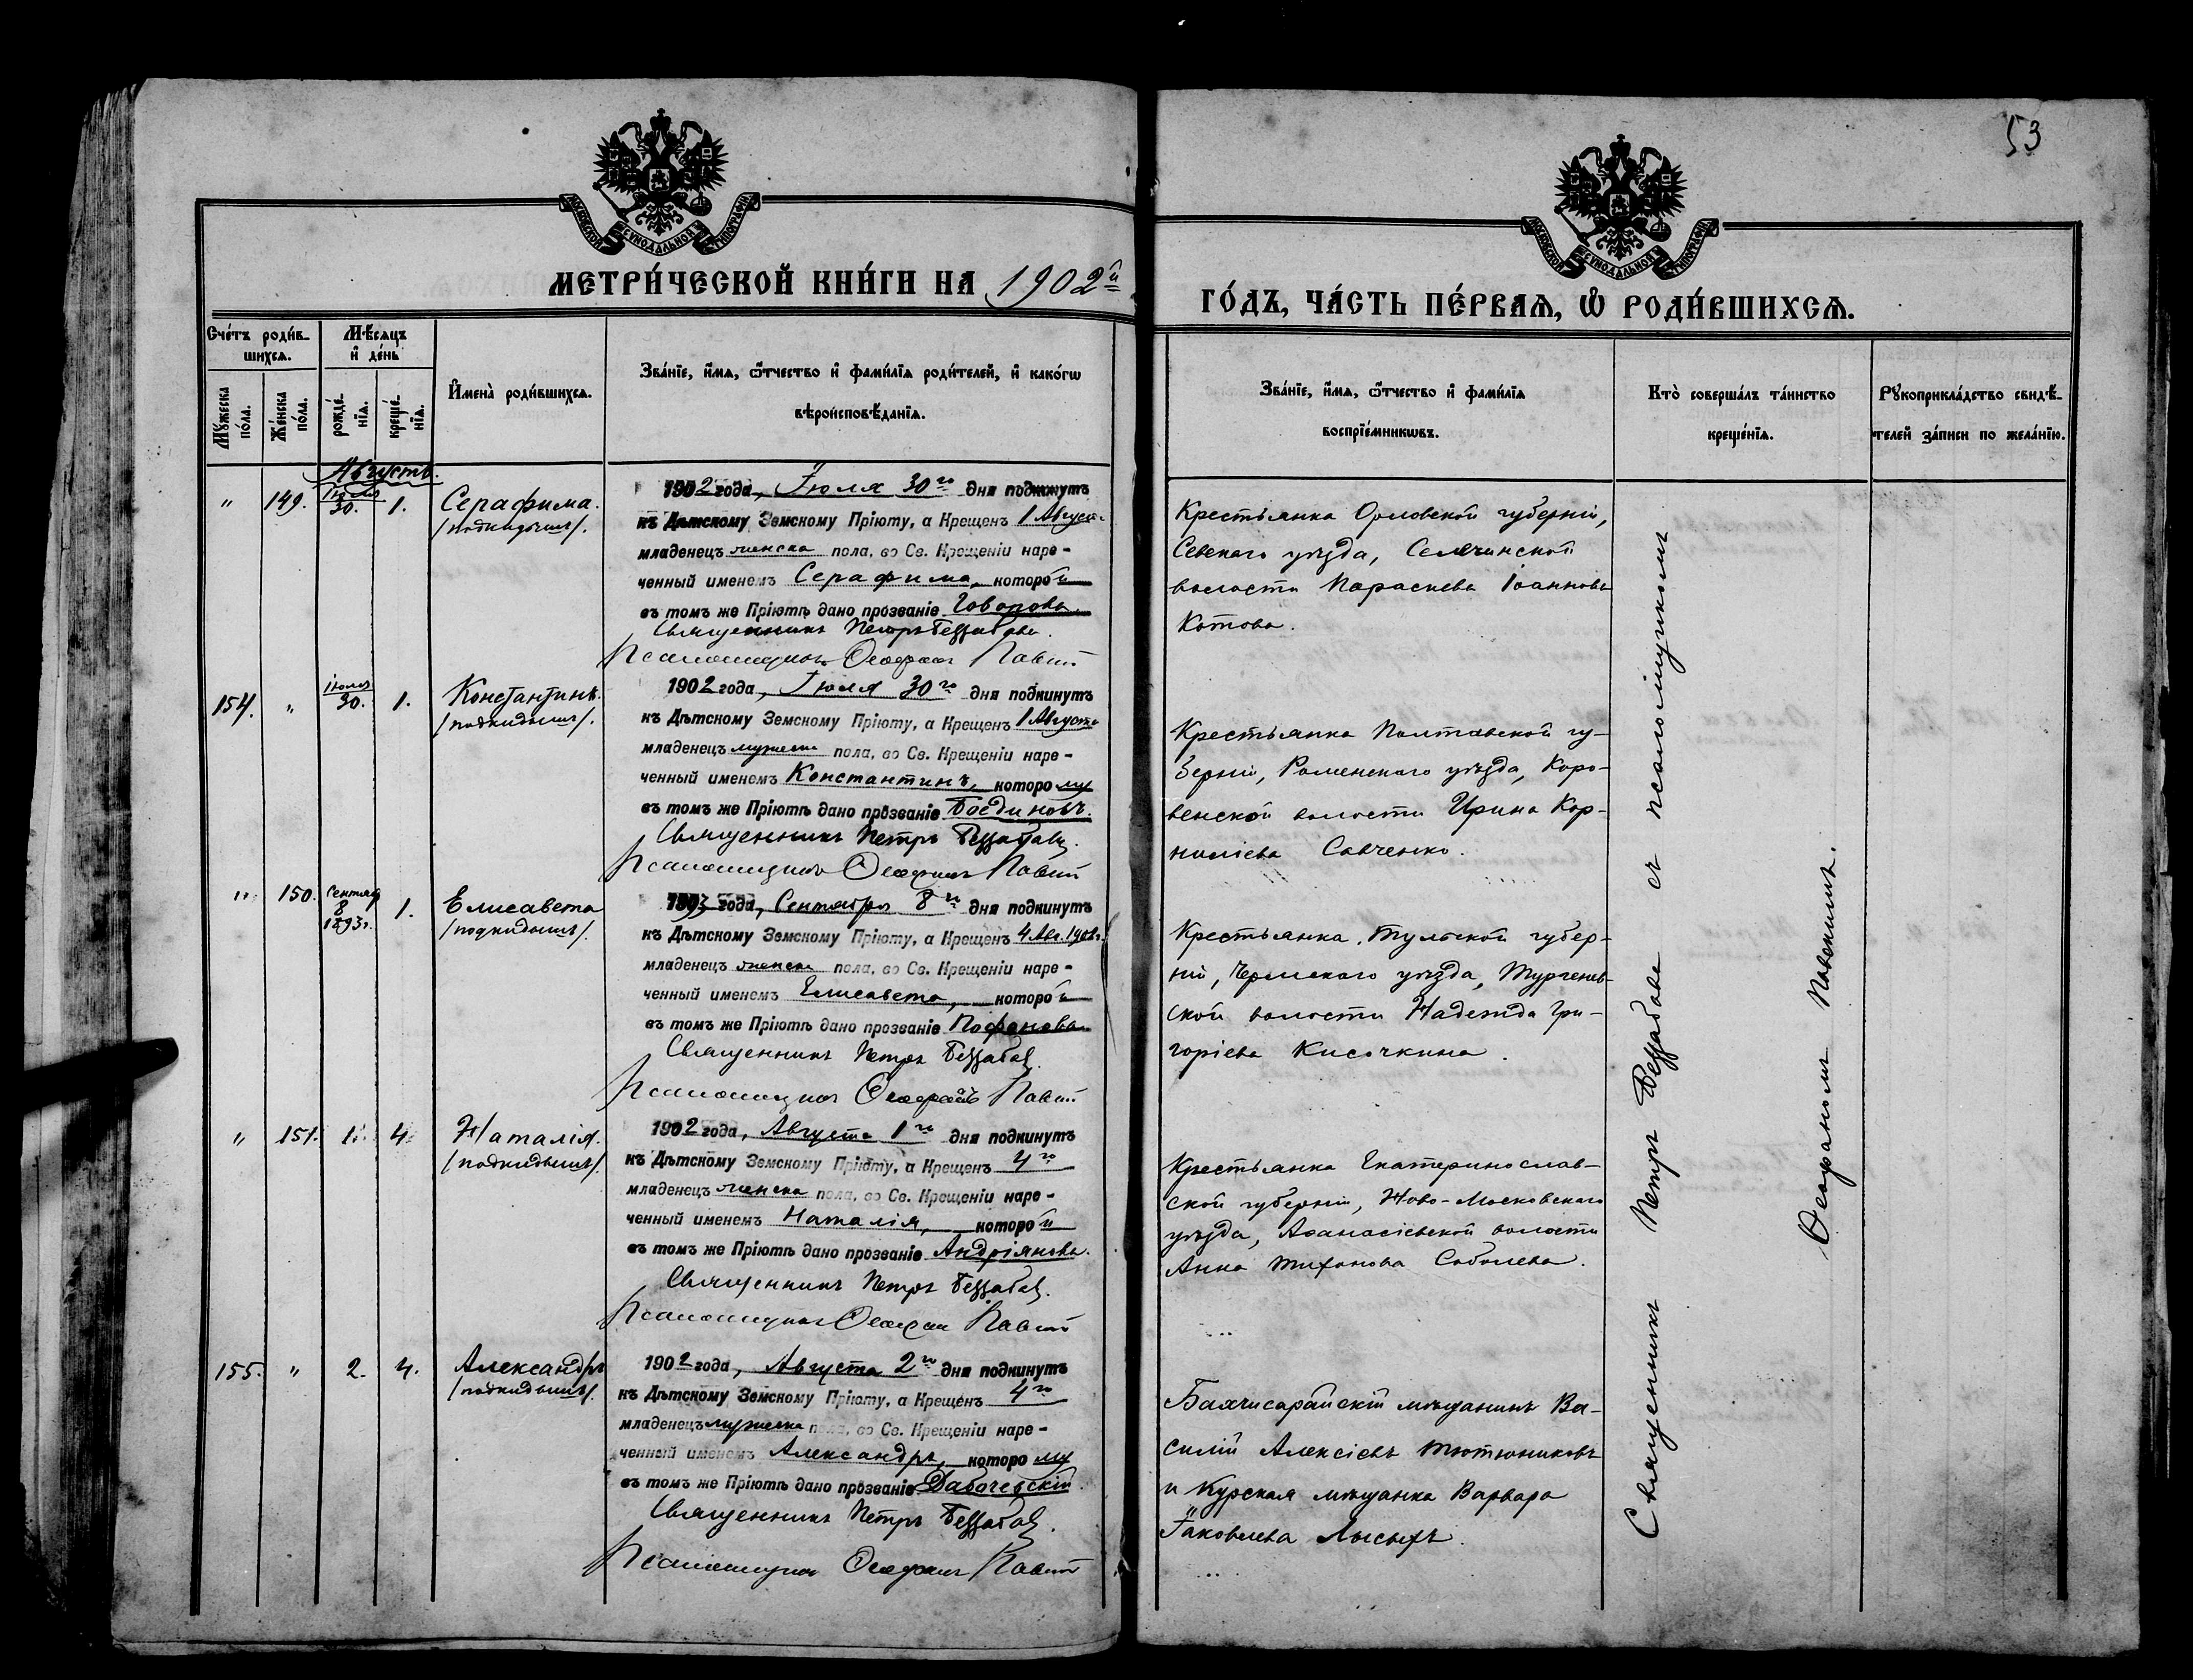 53
МОСКОВСКОЙ СѴНОДАЛЬНОЙ ТИПОГРАФІИ
МОСКОВСКОЙ СѴНОДАЛЬНОЙ ТИПОГРАФІИ
МЕТРИ́ЧЕСКОЙ КНИ́ГИ НА 1902й
ГО́ДЪ, ЧА́СТЬ ПЕ́РВАѦ, Ѽ РОДИ́ВШИХСѦ.
Счéтъ роди́в-
шихсѧ.
Мꙋжеска по́ла.
Же́нска по́ла.
Мѣ́сѧцъ
и҆ де́нь
рожде́-
нїѧ.
креще́-
нїѧ.
И҆мена̀ роди́вшихсѧ.
Зва́нїе, и҆́мѧ, ѻ҆́тчество и҆ фами́лїѧ роди́телей, и҆ како́гѡ
вѣроисповѣ́данїѧ.
Зва́нїе, и҆́мѧ, ѻ҆́тчество и҆ фами́лїѧ
воспрїе́мникѡвъ.
Кто̀ соверша́лъ та́инство
креще́нїѧ.
Рꙋкоприкла́дство свидѣ́-
телей за́писи по жела́нїю.
Августъ.
" 149. Іюля 30. 1. Серафима.
/подкидышъ/.
1902 года, Іюля 30го дня подкинутъ
къ Дѣтскому Земскому Пріюту, а Крещенъ 1 Август.
младенецъ женска пола, во Св. Крещеніи наре-
ченный именемъ Серафима, которой
въ томъ же Пріютѣ дано прозваніе Говорова.
Священникъ Петръ
Псаломщикъ Ѳеофанъ
Крестьянка Орловской губерніи,
Севскаго уѣзда,
волости Параскева Іоаннова
Котова.
154. " Іюля 30. 1. Константинъ.
/подкидышъ/.
1902 года, Іюля 30го дня подкинутъ
къ Дѣтскому Земскому Пріюту, а Крещенъ 1 Августа
младенецъ мужеска пола, во Св. Крещеніи наре-
ченный именемъ Константинъ, которому
въ томъ же Пріютѣ дано прозваніе Боединовъ.
Священникъ Петръ
Псаломщикъ Ѳеофанъ
Крестьянка Полтавской гу-
берніи, Роменскаго уѣзда, Коро-
венской волости Ирина Кор-
ниліева Савченко.
" 150. Сентяб 8 1893г. 1. Елисавета
/подкидышъ/.
года, Сентября 8го дня подкинутъ
къ Дѣтскому Земскому Пріюту, а Крещенъ 4 Авг. 1902г.
младенецъ женска пола, во Св. Крещеніи наре-
ченный именемъ Елисавета, которой
въ томъ же Пріютѣ дано прозваніе
Священникъ Петръ
Псаломщикъ Ѳеофанъ
Крестьянка Тульской губер-
ніи, Чернскаго уѣзда, Тургенев-
ской волости Надежда Гри-
горіева Кисочкина.
" 151. 1. 4. Наталія.
/подкидышъ/.
1902 года, Августа 1го дня подкинутъ
къ Дѣтскому Земскому Пріюту, а Крещенъ 4го
младенецъ женска пола, во Св. Крещеніи наре-
ченный именемъ Наталія, которой
въ томъ же Пріютѣ дано прозваніе Андріянова.
Священникъ Петръ
Псаломщикъ Ѳеофанъ
Крестьянка Екатеринослав-
ской губерніи, Ново-Московскаго
уѣзда, Аѳанасіевской волости
Анна Тихонова Соболева.
155. " 2. 4. Александръ
/подкидышъ/.
1902 года, Августа 2го дня подкинутъ
къ Дѣтскому Земскому Пріюту, а Крещенъ 4го
младенецъ мужеска пола, во Св. Крещеніи наре-
ченный именемъ Александръ, которому
въ томъ же Пріютѣ дано прозваніе
Священникъ Петръ
Псаломщикъ Ѳеофанъ
Бахчисарайскій мѣщанинъ Ва-
силій Алексіевъ Тютюниковъ
и Курская мѣщанка Варвара
Іаковлева Лысыхъ.
Священникъ Петръ съ псаломщикомъ
Ѳеофаномъ